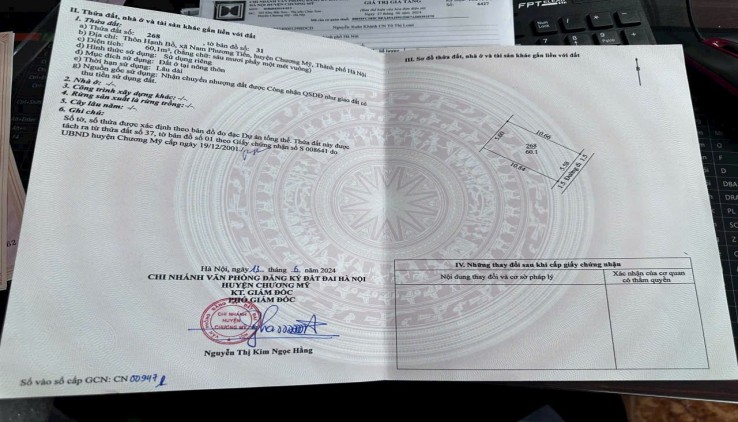 II. Thửa đất, nhà ở và tài sản khác gắn liền với đất
1. Thửa đất:
a) Thửa đất số: 268 , tờ bản đồ số: 31
b) Địa chỉ: Thôn Hạnh Bồ, xã Nam Phương Tiến, huyện Chương Mỹ, Thành phố Hà Nội
c) Diện tích: 60,1m², (bằng chữ: sáu mươi phẩy một mét vuông)
d) Hình thức sử dụng: Sử dụng riêng
đ) Mục đích sử dụng: Đất ở tại nông thôn
e) Thời hạn sử dụng: Lâu dài
g) Nguồn gốc sử dụng: Nhận chuyển nhượng đất được Công nhận QSDĐ như giao đất có
thu tiền sử dụng đất.
2. Nhà ở: -/-
3. Công trình xây dựng khác: -/-
4. Rừng sản xuất là rừng trồng: -/-
5. Cây lâu năm: -/-
6. Ghi chú:
Số tờ, số thửa được xác định theo bản đồ đo đạc Dự án tổng thể. Thửa đất này được
tách ra từ thửa đất số 37, tờ bản đồ số 01 theo Giấy chứng nhận số S 008641 do
UBND huyện Chương Mỹ cấp ngày 19/12/2001
Hà Nội, ngày 13 tháng 6 năm 2024
CHI NHÁNH VĂN PHÒNG ĐĂNG KÝ ĐẤT ĐAI HÀ NỘI
HUYỆN CHƯƠNG MỸ
KT. GIÁM ĐỐC
PHÓ GIÁM ĐỐC
CHI NHÁNH
HUYỆN
CHƯƠNG MỸ
Nguyễn Thị Kim Ngọc Hằng
Số vào sổ cấp GCN: CN 00947
III. Sơ đồ thửa đất, nhà ở và tài sản khác gắn liền với đất
5.60
10.66
268
60.1
10.84
5.58
1.5 Đường đi 1.5
IV. Những thay đổi sau khi cấp giấy chứng nhận
Nội dung thay đổi và cơ sở pháp lý
Xác nhận của cơ quan
có thẩm quyền
GIÁ TRỊ GIA TĂNG
6427
FPT